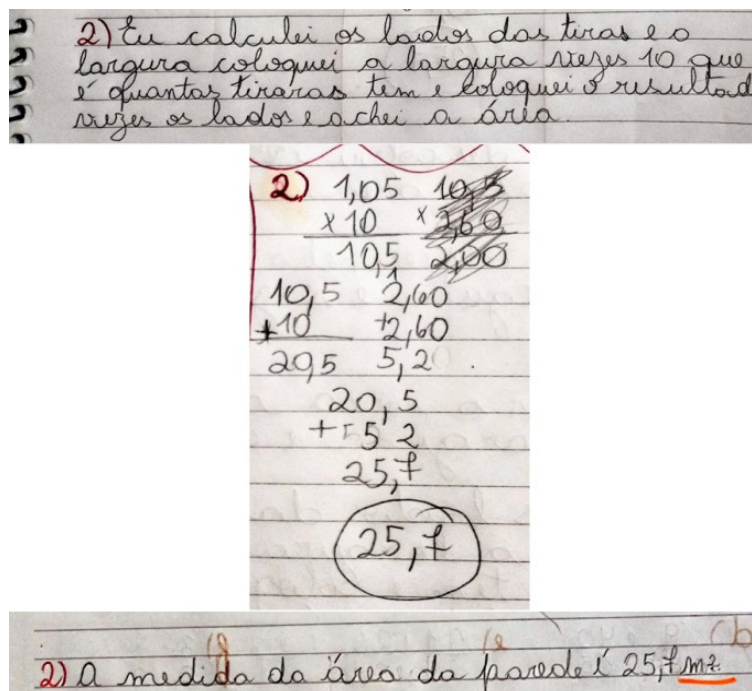 2) Eu calculei os lados das tiras e o
largura coloquei a largura vezes 10 que
é quantas tiraras tem e coloquei o resultad
vezes os lados e achei a área.
2) 1,05 10,5
x 10 x 2,60
10,5 2,00
1
10,5 2,60
+10 +2,60
20,5 5,20
20,5
+ 5 2
25,7
25,7
2) A medida da área da parede é 25,7 m2